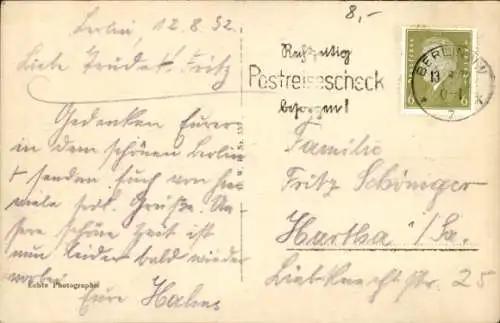 8,-
Berlin, 12.8.32.
Liebe Trude u. Fritz
Gedenken Eurer
in dem schönen Berlin
+ senden Euch von hier
viele herzl. Grüße. Un-
sere schöne Zeit ist
nun leider bald wieder
vorbei
Eure
Echte Photographie
Rechtzeitig
Postreisescheck
besorgen!
BERLIN
13
7
DEUTSCHES REICH
6 6
Familie
Fritz Schöniger
Hartha i/Sa.
Liebknecht Str. 25